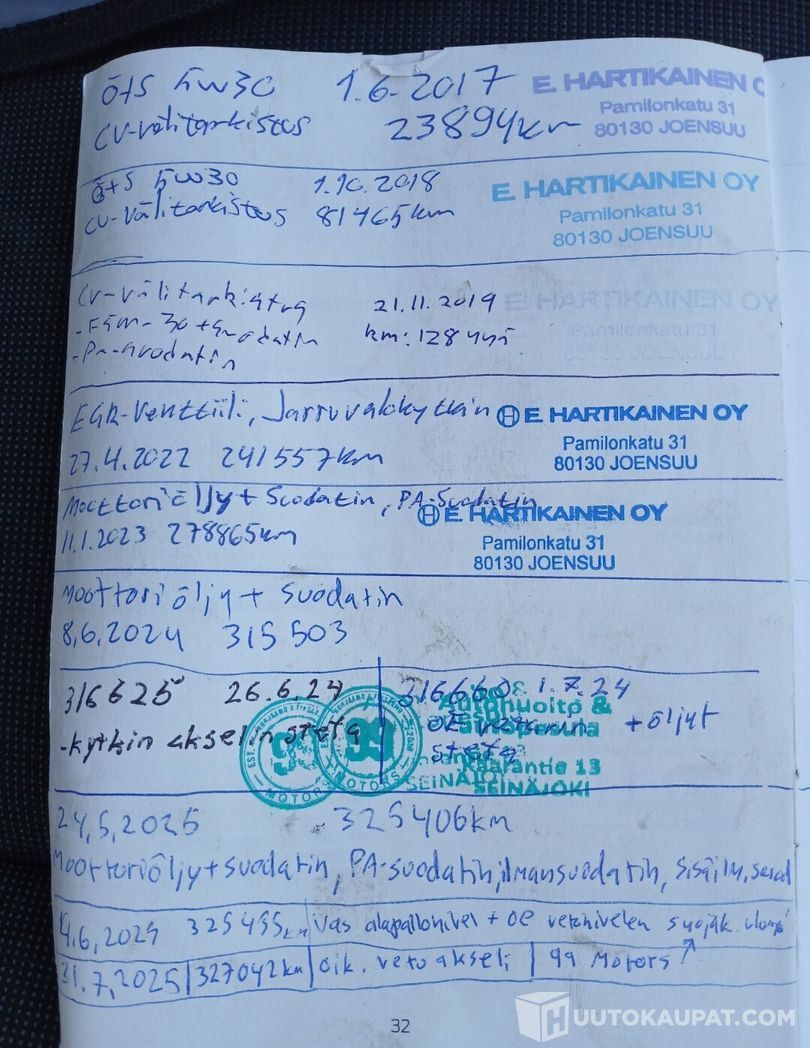 Ö+S 5W30 1.6.2017 E. HARTIKAINEN O
Pamilonkatu 31
CV-välitarkistus 23894km 80130 JOENSUU
Ö+S 5W30 1.10.2018 E. HARTIKAINEN OY
CV-Välitarkistus 81465km Pamilonkatu 31
80130 JOENSUU
CV-välitarkistus 21.11.2019 E. HARTIKAINEN OY
-30+suodatin km: Pamilonkatu 31
-PA-suodatin 80130 JOENSUU
EGR-Venttiili, Jarruvalokytkin H E. HARTIKAINEN OY
Pamilonkatu 31
27.4.2022 241557km 80130 JOENSUU
Moottoriöljy + Suodatin, PA-Suodatin
11.1.2023 278865km H E. HARTIKAINEN OY
Pamilonkatu 31
80130 JOENSUU
Moottoriöljy + suodatin
8.6.2024 315503
316625 26.6.24 316660 1.7.24
Autohuolto &
-kytkin akselin steta + öljyt
steta
99 MOTORS
13
SEINÄJOKI
24.5.2025 325406km
Moottoriöljy + suodatin, PA-suodatin, ilmansuodatin, sisäilm, suod
4.6.2025 325455km Vas alapallonivel + oe vetonivelen suojak.
31.7.2025 327042km oik. vetoakseli 99 Motors
32
HUUTOKAUPAT.COM